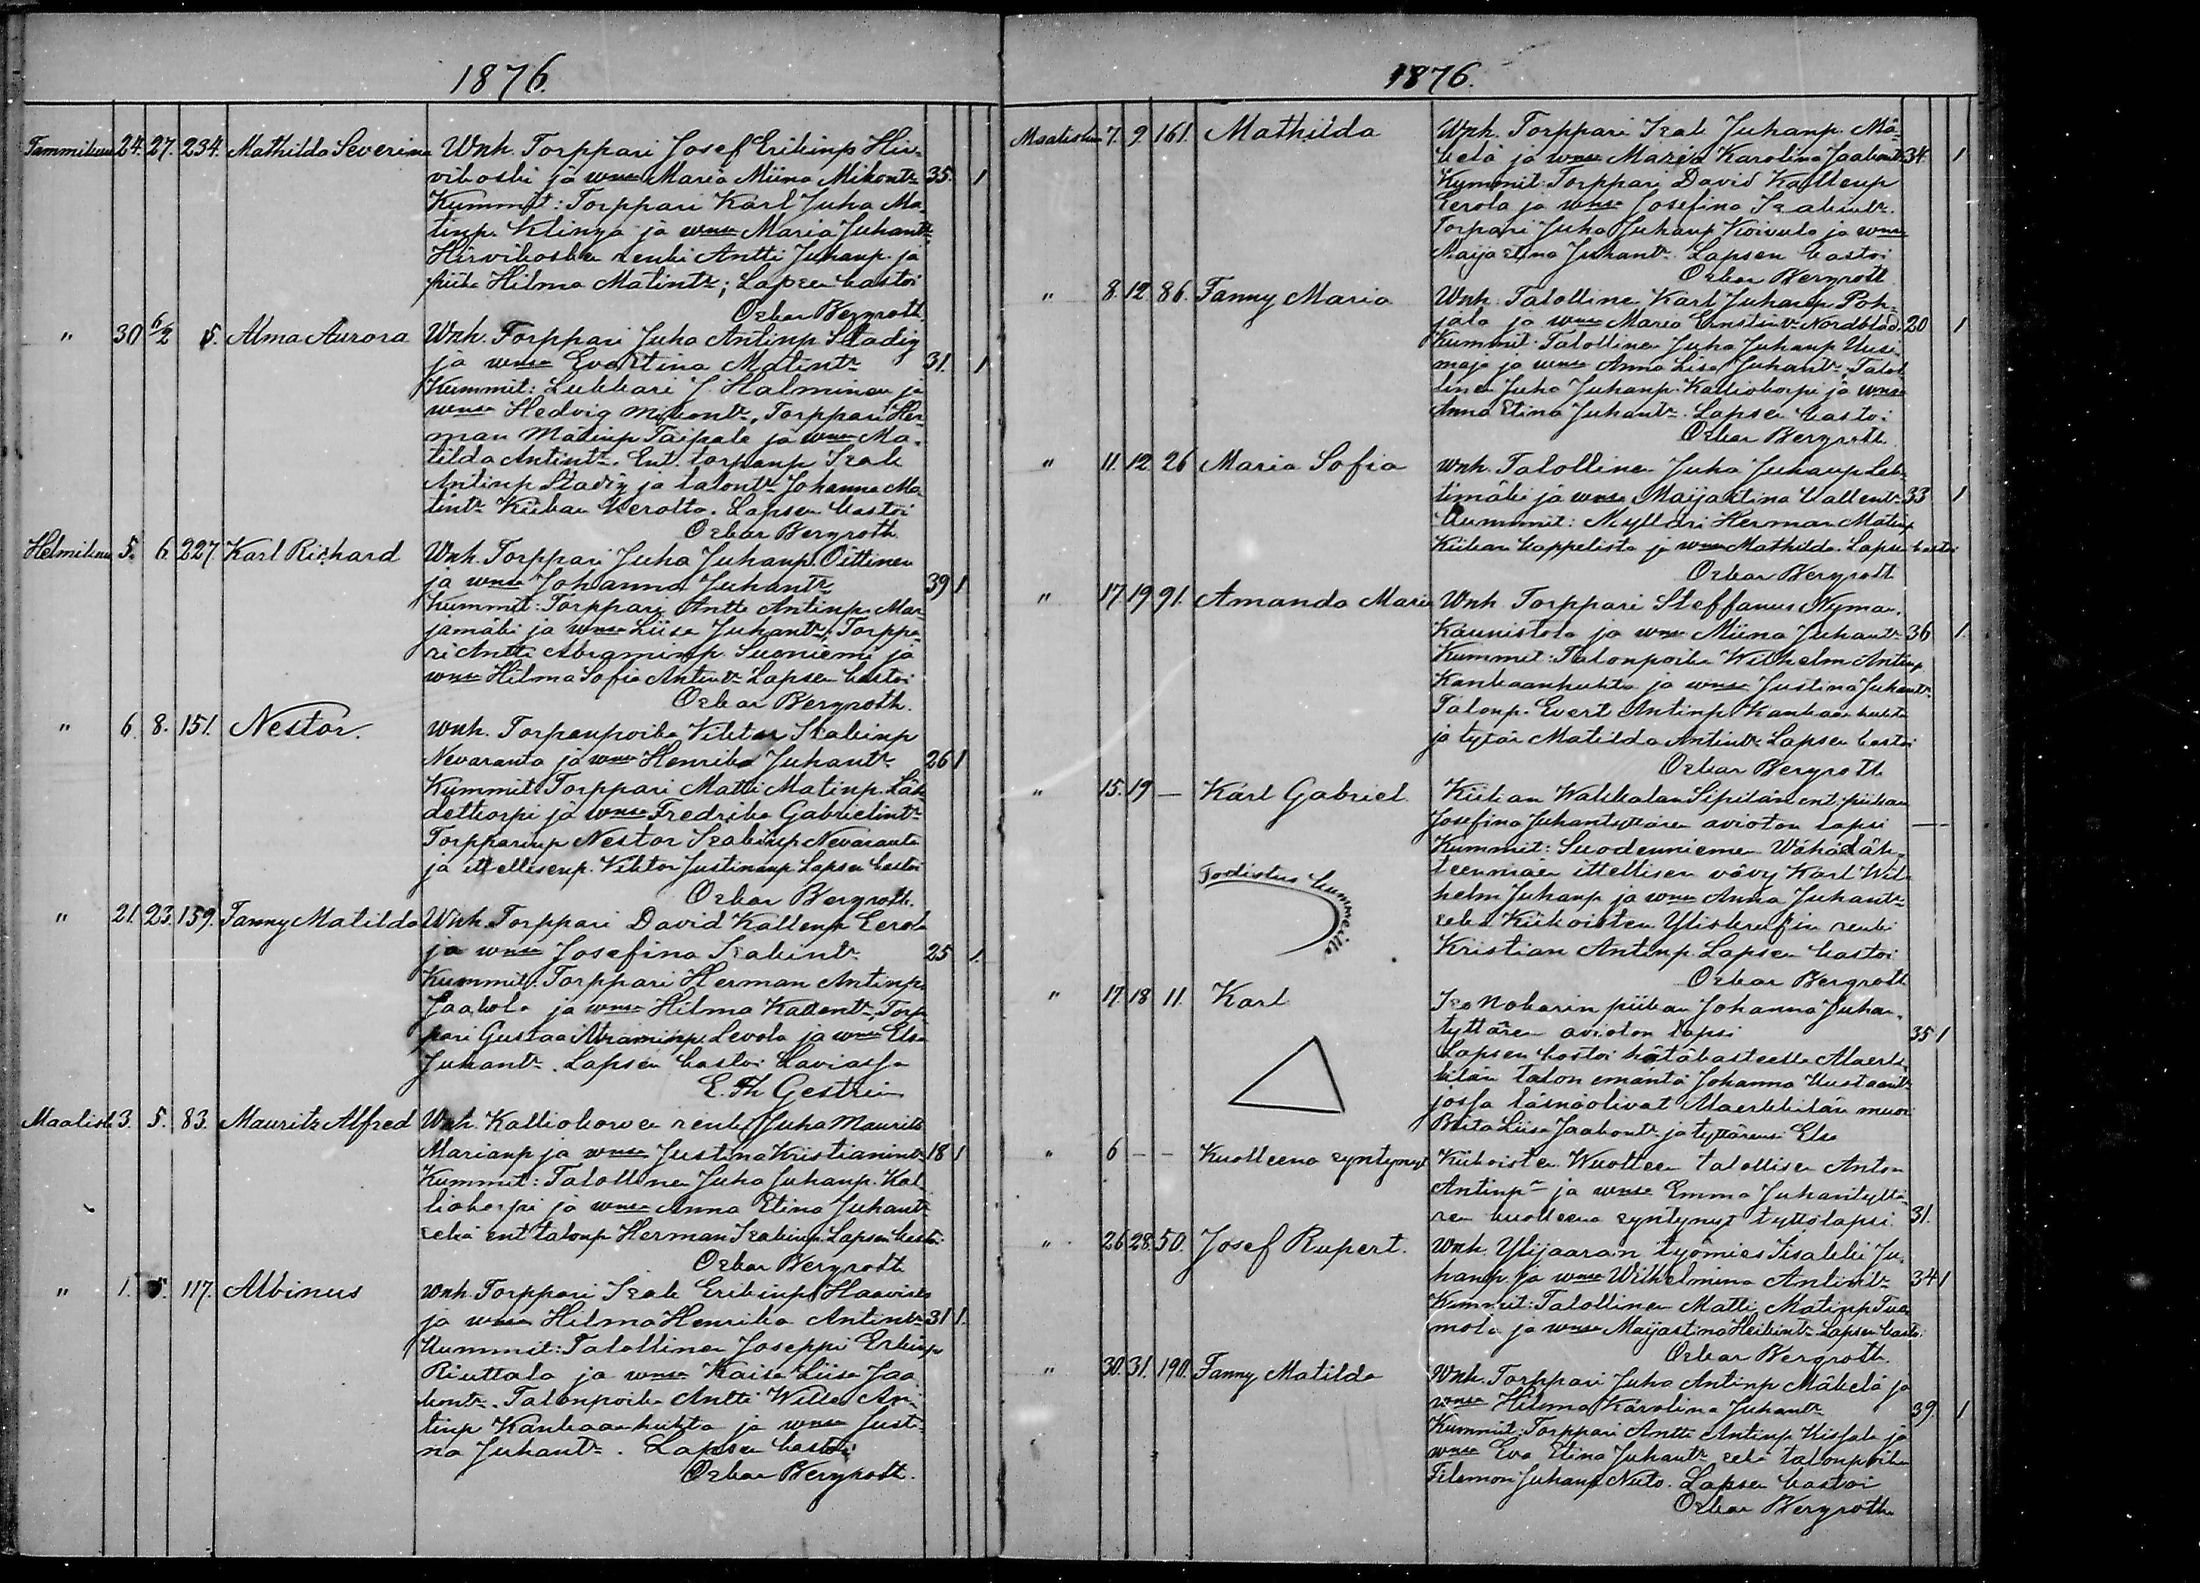 1876.
Tammikuu 24. 27. 234. Mathilda Severina Wnh. Torppari Josef Erikinp Hir-
vikoski ja wmsa Maria Miina Mikontr 35. 1
Kummit: Torppari Karl Juha Ma-
tinp. Klinga ja wmsa Maria Juhantr
Hirvikosken renki Antti Juhanp. ja
piika Hilma Matintr; Lapsen kastoi
Oskar Bergroth.
" 30 6/2 5. Alma Aurora Wnh. Torppari Juha Antinp Stadig
ja wmsa Eva Stina Matintr 31. 1
Kummit: Lukkari J. Halminen ja
wmsa Hedvig Mikontr, Torppari Her-
man Matinp Taipale ja wmsa Ma-
tilda Antintr. Ent. torpanp Isak
Antinp Stadig ja talontr Johanna Ma-
tintr Kiikan Kerolta. Lapsen kastoi
Oskar Bergroth.
Helmikuu 5. 6 227. Karl Richard Wnh. Torppari Juha Juhanp. Oittinen
ja wmsa Johanna Juhantr 39 1
Kummit: Torppari Antti Antinp. Mar-
jamäki ja wmsa Liisa Juhantr; Torppa-
ri Antti Suoniemi ja
wmsa Hilma Sofia Antintr Lapsen kastoi
Oskar Bergroth.
" 6. 8. 151. Nestor. Wnh. Torpanpoika Viktor Isakinp
Nevaranta ja wmsa Henrika Juhantr 26 1
Kummit Torppari Matti Matinp. Läh-
dekorpi ja wmsa Fredrika Gabrielintr
Torpparinp Nestor Isakinp Nevaranta
ja ittellisenp. Viktor Justinanp Lapsen kastoi
Oskar Bergroth.
" 21. 23. 159. Fanny Matilda Wnh. Torppari David Kallenp Eerola
ja wmsa Josefina Isakintr 25 1.
Kummit: Torppari Herman Antinp.
Jaakola ja wmsa Hilma Kallentr, Torp-
pari Gustaa Levola ja wmsa Elsa
Juhantr. Lapsen kastoi Laviassa
E. Th Gestrin
Maalisk 3. 5. 83. Mauritz Alfred Wnh. Kalliokorven renki Juha Maurits
Marianp ja wmsa Justina Kristianintr 18 1
Kummit: Talollinen Juha Juhanp. Kal-
liokorpi ja wmsa Anna Stina Juhantr
sekä ent talonp Herman Isakinp. Lapsen kastoi
Oskar Bergroth
" 1. 5. 117. Albinus Wnh Torppari Isak Erikinp Haavisto
ja wmsa Hilma Henrika Antintr 31 1.
Kummit: Talollinen Joseppi Erkinp
Riuttala ja wmsa Kaisa Liisa Jaa-
kontr. Talonpoika Antti Wille An-
tinp Kankaanhuhta ja wmsa Justi-
na Juhantr. Lapsen kastoi
Oskar Bergroth.
1876.
Maaliskuu 7. 9. 161. Mathilda Wnh. Torppari Isak Juhanp. Mä-
kelä ja wmsa Maria Karolina Jaakontr 34. 1
Kummit: Torppari David Kallenp
Eerola ja wmsa Josefina Isakintr.
Torpari Juha Juhanp Koivula ja wmsa
Maija Stina Juhantr. Lapsen kastoi
Oskar Bergroth
" 8. 12. 86. Fanny Maria Wnh. Talollinen Karl Juhanp Poh-
jala ja wmsa Maria Ernstintr Nordblad. 20 1
Kummit. Talollinen Juha Juhanp Uusi-
maja ja wmsa Anna Lisa Juhantr. Talol-
linen Juha Juhanp. Kalliokorpi ja wmsa
Anna Stina Juhantr. Lapsen kastoi
Oskar Bergroth
" 11. 12. 26 Maria Sofia Wnh. Talollinen Juha Juhanp Leh-
timäki ja wmsa Maijastina Kallentr 33 1
Kummit: Mylläri Herman Matinp
Kiikan kappelista ja wmsa Mathilda. Lapsen kastoi
Oskar Bergroth
" 17. 19. 91. Amanda Maria Wnh. Torppari Steffanus Nyman.
Kaunistola ja wmsa Miina Juhantr 36 1.
Kummit: Talonpoika Wilhelm Antinp
Kankaanhuhta ja wmsa Justina Juhantr.
Talonp. Evert Antinp Kankaanhuhta
ja tytär Matilda Antintr. Lapsen kastoi
Oskar Bergroth
" 15. 19 — Karl Gabriel Kiikan Walkalan Sipilän ent. piikan
Josefina Juhantyttären avioton lapsi —
Kummit: Suodenniemen Wähäläh-
teenmäen ittellisen vävy Karl Wil-
Todistus kummeille
helm Juhanp ja wmsa Anna Juhantr
sekä Kiikoisten Yliskrefin renki
Kristian Antinp. Lapsen kastoi
Oskar Bergroth
" 17 18 11. Karl Iso Nokarin piikan Johanna Juhan-
tyttären avioton lapsi 35 1
Lapsen kastoi hätäkasteella
talon emäntä Johanna Kustaantr
jossa läsnäolivat muori
Brita Liisa Jaakontr ja tyttärensä Elsa
" 6 — — Kuolleena syntynyt Kiikoisten Wuolteen talollisen Anton
Antinpn ja wmsa Emma Juhantyttä-
ren kuolleena syntynyt tyttölapsi 31.
" 26 28. 50. Josef Rupert. Wnh. Ylijaaran työmies Iisakki Ju-
hanp. ja wmsa Wilhelmina Antintr. 34 1
Kummit: Talollinen Matti Matinp Tuo-
mola ja wmsa Maijastina Heikintr. Lapsen kastoi
Oskar Bergroth.
" 30. 31. 190. Fanny Matilda Wnh. Torppari Juha Antinp Mäkelä ja
wmsa Hilma Karolina Juhantr 39. 1
Kummit: Torppari Antti Antinp Kissala ja
wmsa Eva Stina Juhantr sekä talonpoika
Filemon Juhanp Nuto. Lapsen kastoi
Oskar Bergroth